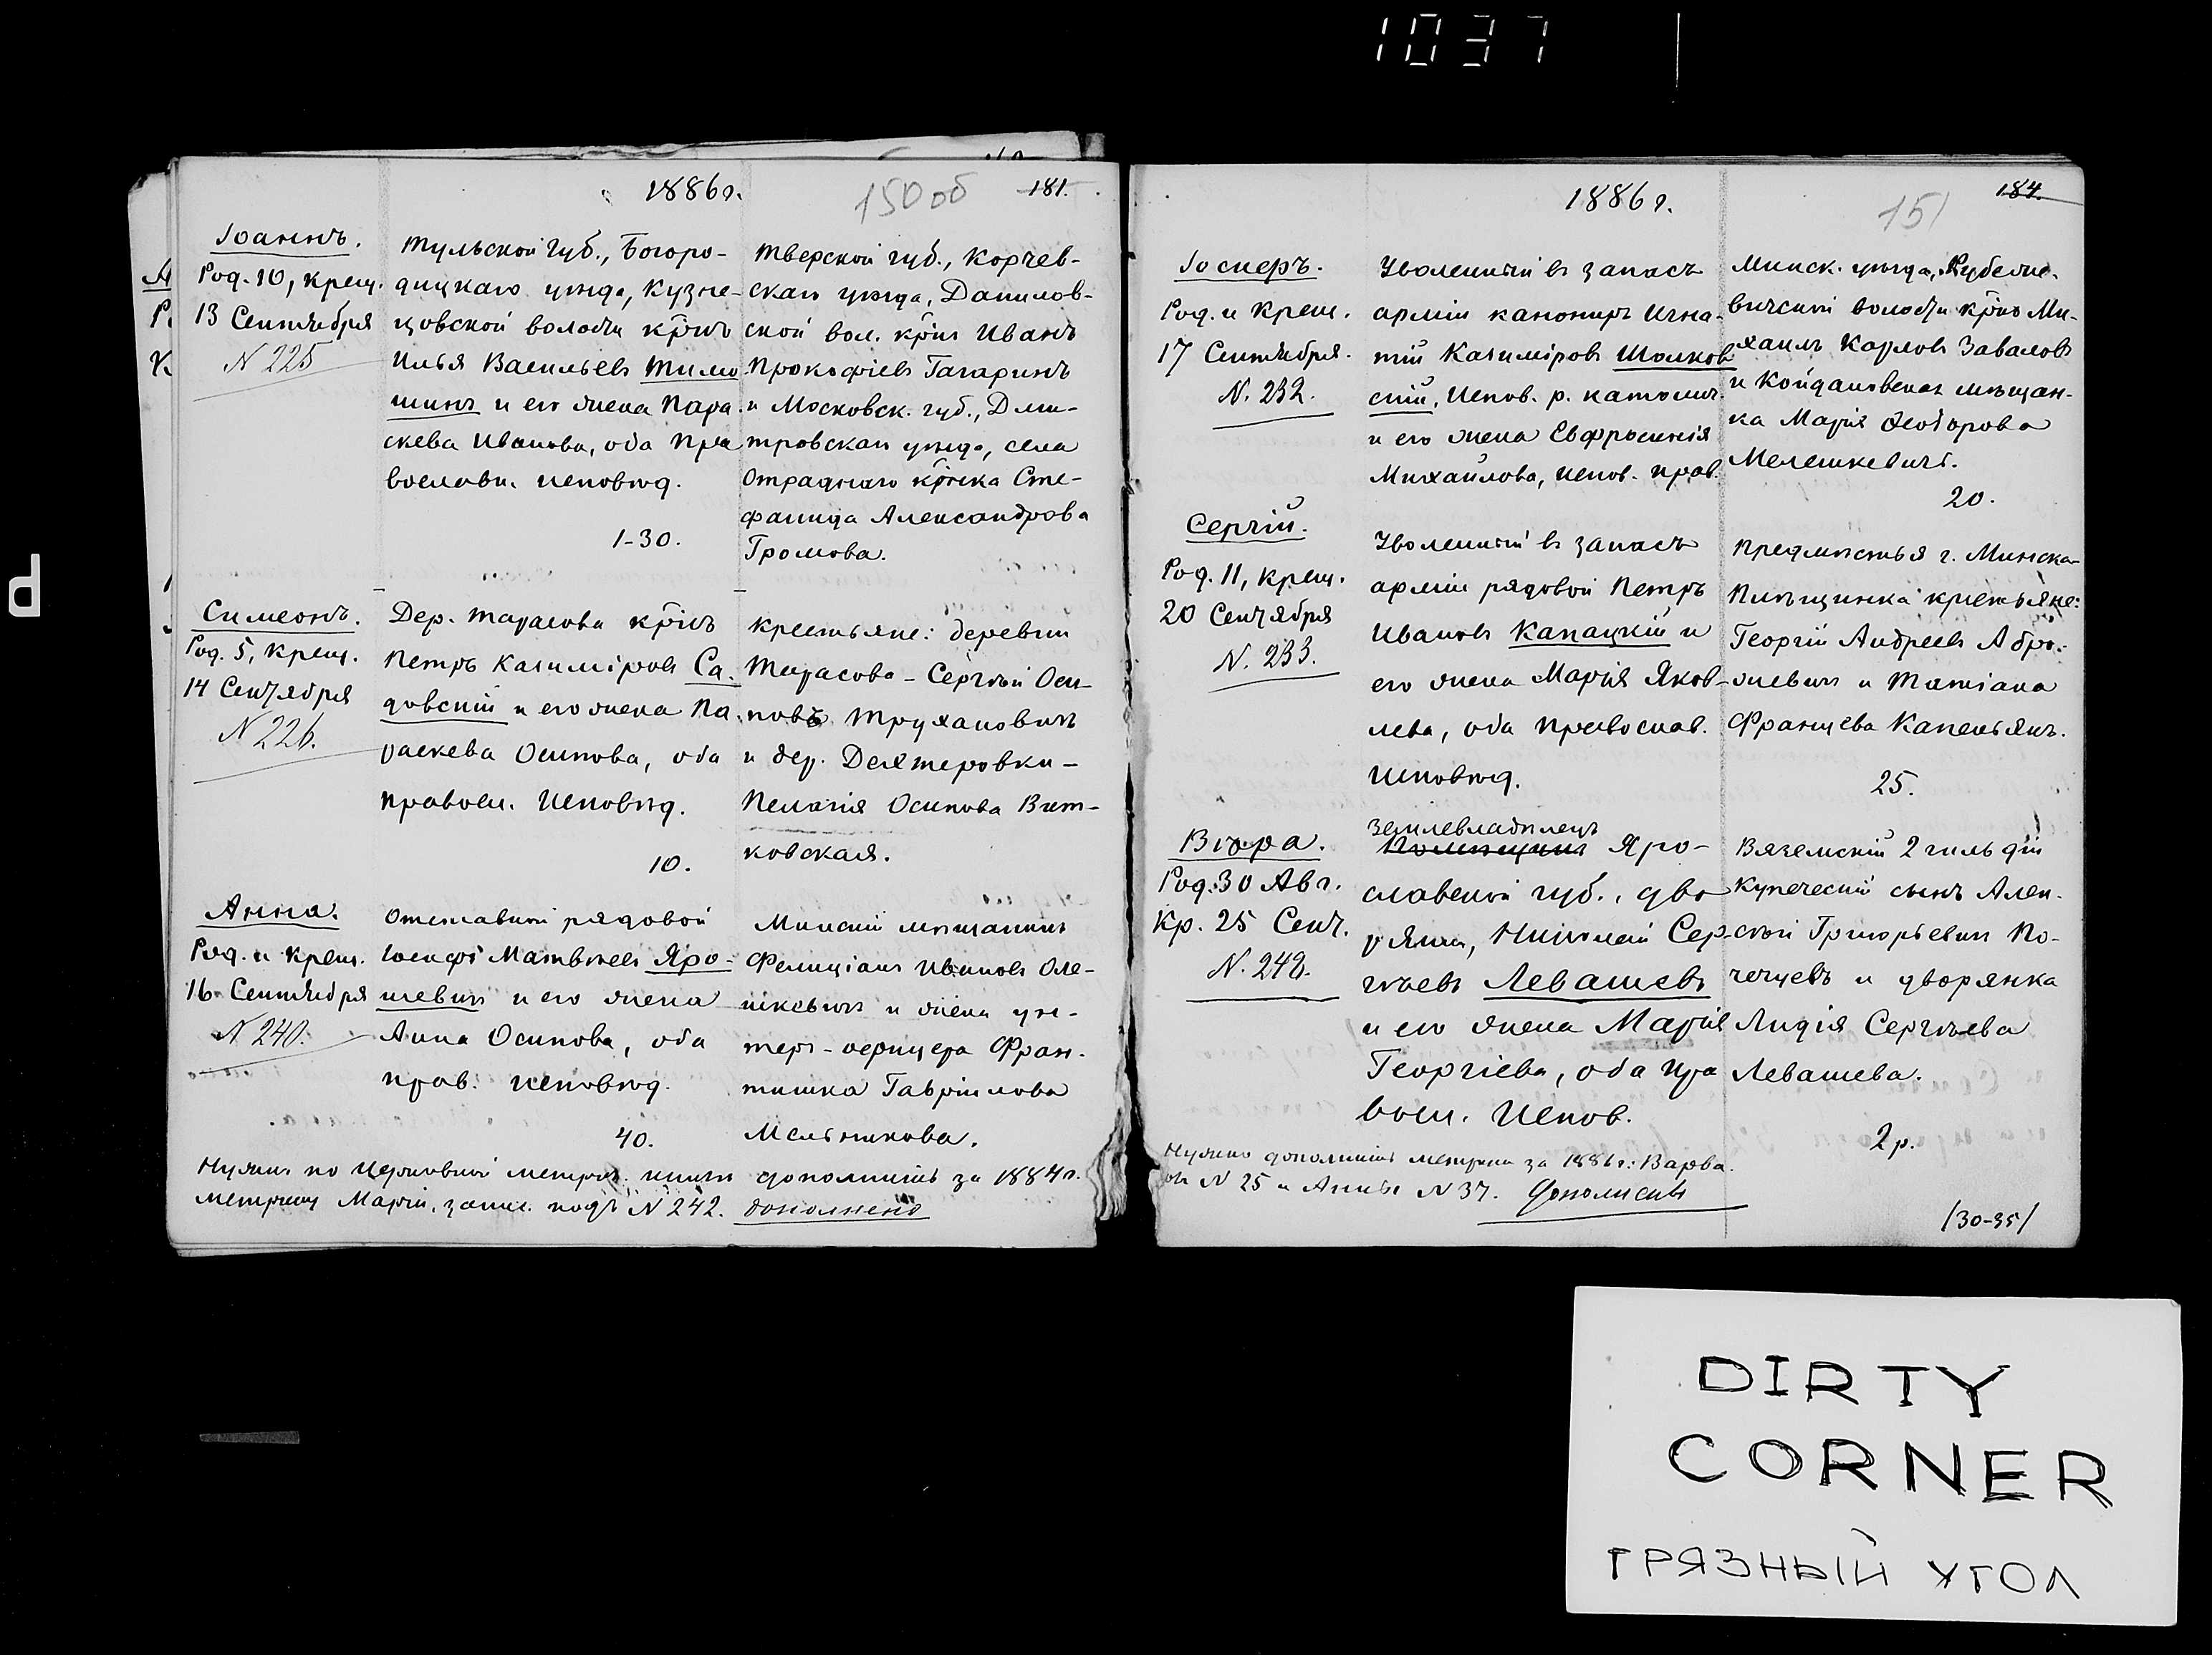 1037
1886г.
150 об
181.
Іоаннъ.
Род. 10, крещ.
13 Сентября
N 225
Тульской губ., Богоро-
дицкаго уѣзда, Кузне-
цовской волости кр̃нъ
Илья Васильевъ Тимо
шинъ и его жена Пара-
скева Иванова, оба пра
вославн. исповѣд.
1-30.
Тверской губ., Корчев-
скаго уѣзда, Данилов-
ской вол. кр̃нъ Иванъ
Прокофіевъ Гагаринъ
и Московск. губ., Дми-
тровскаго уѣзда, села
Отраднаго кр̃нка Сте-
фанида Александрова
Громова.
Симеонъ.
Род. 5, крещ.
14 Сентября
N 226.
Дер. Тарасова кр̃нъ
Петръ Казиміровъ Са-
довскій и его жена Па-
раскева Осипова, оба
правосл. исповѣд.
10.
Крестьяне: деревни
Тарасова - Сергѣй Оси-
повъ Трухановичъ
и дер. Дегтеровки -
Пелагія Осипова Вит-
ковская.
Анна.
Род. и крещ.
16 Сентября
N 240.
Отставной рядовой
Іосифъ Матвѣевъ Яро-
шевичъ и его жена
Анна Осипова, оба
прав. исповѣд.
40.
Минскій мѣщанинъ
Фелиціанъ Ивановъ Оле-
шкевичъ и жена ун-
теръ-офицера Фран-
тишка Гавріилова
Мельникова.
Нужно по церковной метрич. книгѣ дополнить за 1884 г.
метрику Маріи, запис. подъ N 242. дополнено
1886 г.
151
184.
Іосифъ.
Род. и крещ.
17 Сентября.
N. 232.
Уволенный въ запасъ
арміи канониръ Игна-
тій Казиміровъ Шолков
скій, испов. р. католич.
и его жена Евфросинія
Михайлова, испов. прав.
Минск. уѣзда,
вичской волости кр̃нъ Ми-
хаилъ Карловъ Заваловъ
и Койдановская мѣщан-
ка Марія Ѳеодорова
Мелешкевичъ.
20.
Сергій.
Род. 11, крещ.
20 Сентября
N. 233.
Уволенный въ запасъ
арміи рядовой Петръ
Ивановъ Капацкій и
его жена Марія Яков-
лева, оба православ.
исповѣд.
Предмѣстья г. Минска-
крестьяне:
Георгій Андреевъ Абра-
жевичъ и Татіана
Францева Капельянъ.
25.
Вѣра.
Род. 30 Авг.
Кр. 25 Сент.
N. 242.
землевладѣлецъ
Помѣщикъ Яро-
славской губ., дво
рянинъ, Николай Сер-
гѣевъ Левашевъ
и его жена Марія
Георгіева, оба пра
восл. испов.
Вяземскій 2 гильдіи
купеческій сынъ Алек-
сѣй Григорьевичъ По-
чецевъ и дворянка
Лидія Сергѣева
Левашева.
2 р.
Нужно дополнить метрики за 1886 г.: Варва-
ры N 25 и Анны N 37. Дополнены
/30-35/
DIRTY
CORNER
ГРЯЗНЫЙ УГОЛ